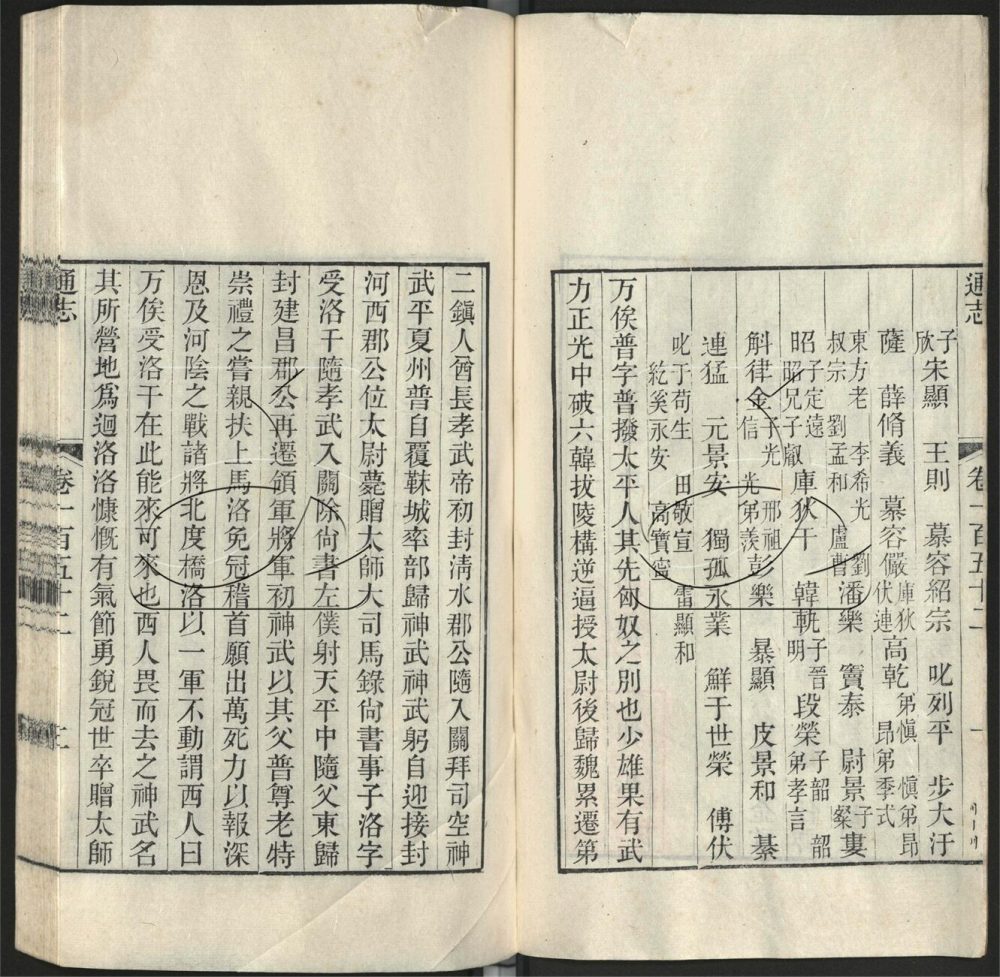 通志
卷一百五十二
一
子欣 宋顯 王則 慕容紹宗 叱列平 步大汗
薩 薛脩義 慕容儼 庫狄伏連 高乾 弟慎 慎弟昂 昂弟季式
東方老 李希光 劉叔宗 劉孟和 盧曹 潘樂 竇泰 尉景 子粲 婁
昭 子定遠 昭兄子叡 庫狄干 韓軌 子晉明 段榮 子韶 韶弟孝言
斛律金 子光 光弟羨 邢祖信 彭樂 暴顯 皮景和 綦
連猛 元景安 獨孤永業 鮮于世榮 傅伏
叱于苟生 田敬宣 雷顯和
紇奚永安 高寶寗
万俟普字普撥太平人其先匈奴之別也少雄果有武
力正光中破六韓拔陵構逆逼授太尉後歸魏累遷第
二鎮人酋長孝武帝初封淸水郡公隨入關拜司空神
武平夏州普自覆靺城率部歸神武神武躬自迎接封
河西郡公位太尉薨贈太師大司馬錄尙書事子洛字
受洛干隨孝武入關除尙書左僕射天平中隨父東歸
封建昌郡公再遷領軍將軍初神武以其父普尊老特
崇禮之嘗親扶上馬洛免冠稽首願出萬死力以報深
恩及河陰之戰諸將北度橋洛以一軍不動謂西人曰
万俟受洛干在此能來可來也西人畏而去之神武名
其所營地爲迴洛洛慷慨有氣節勇銳冠世卒贈太師
通志
卷一百五十二
二